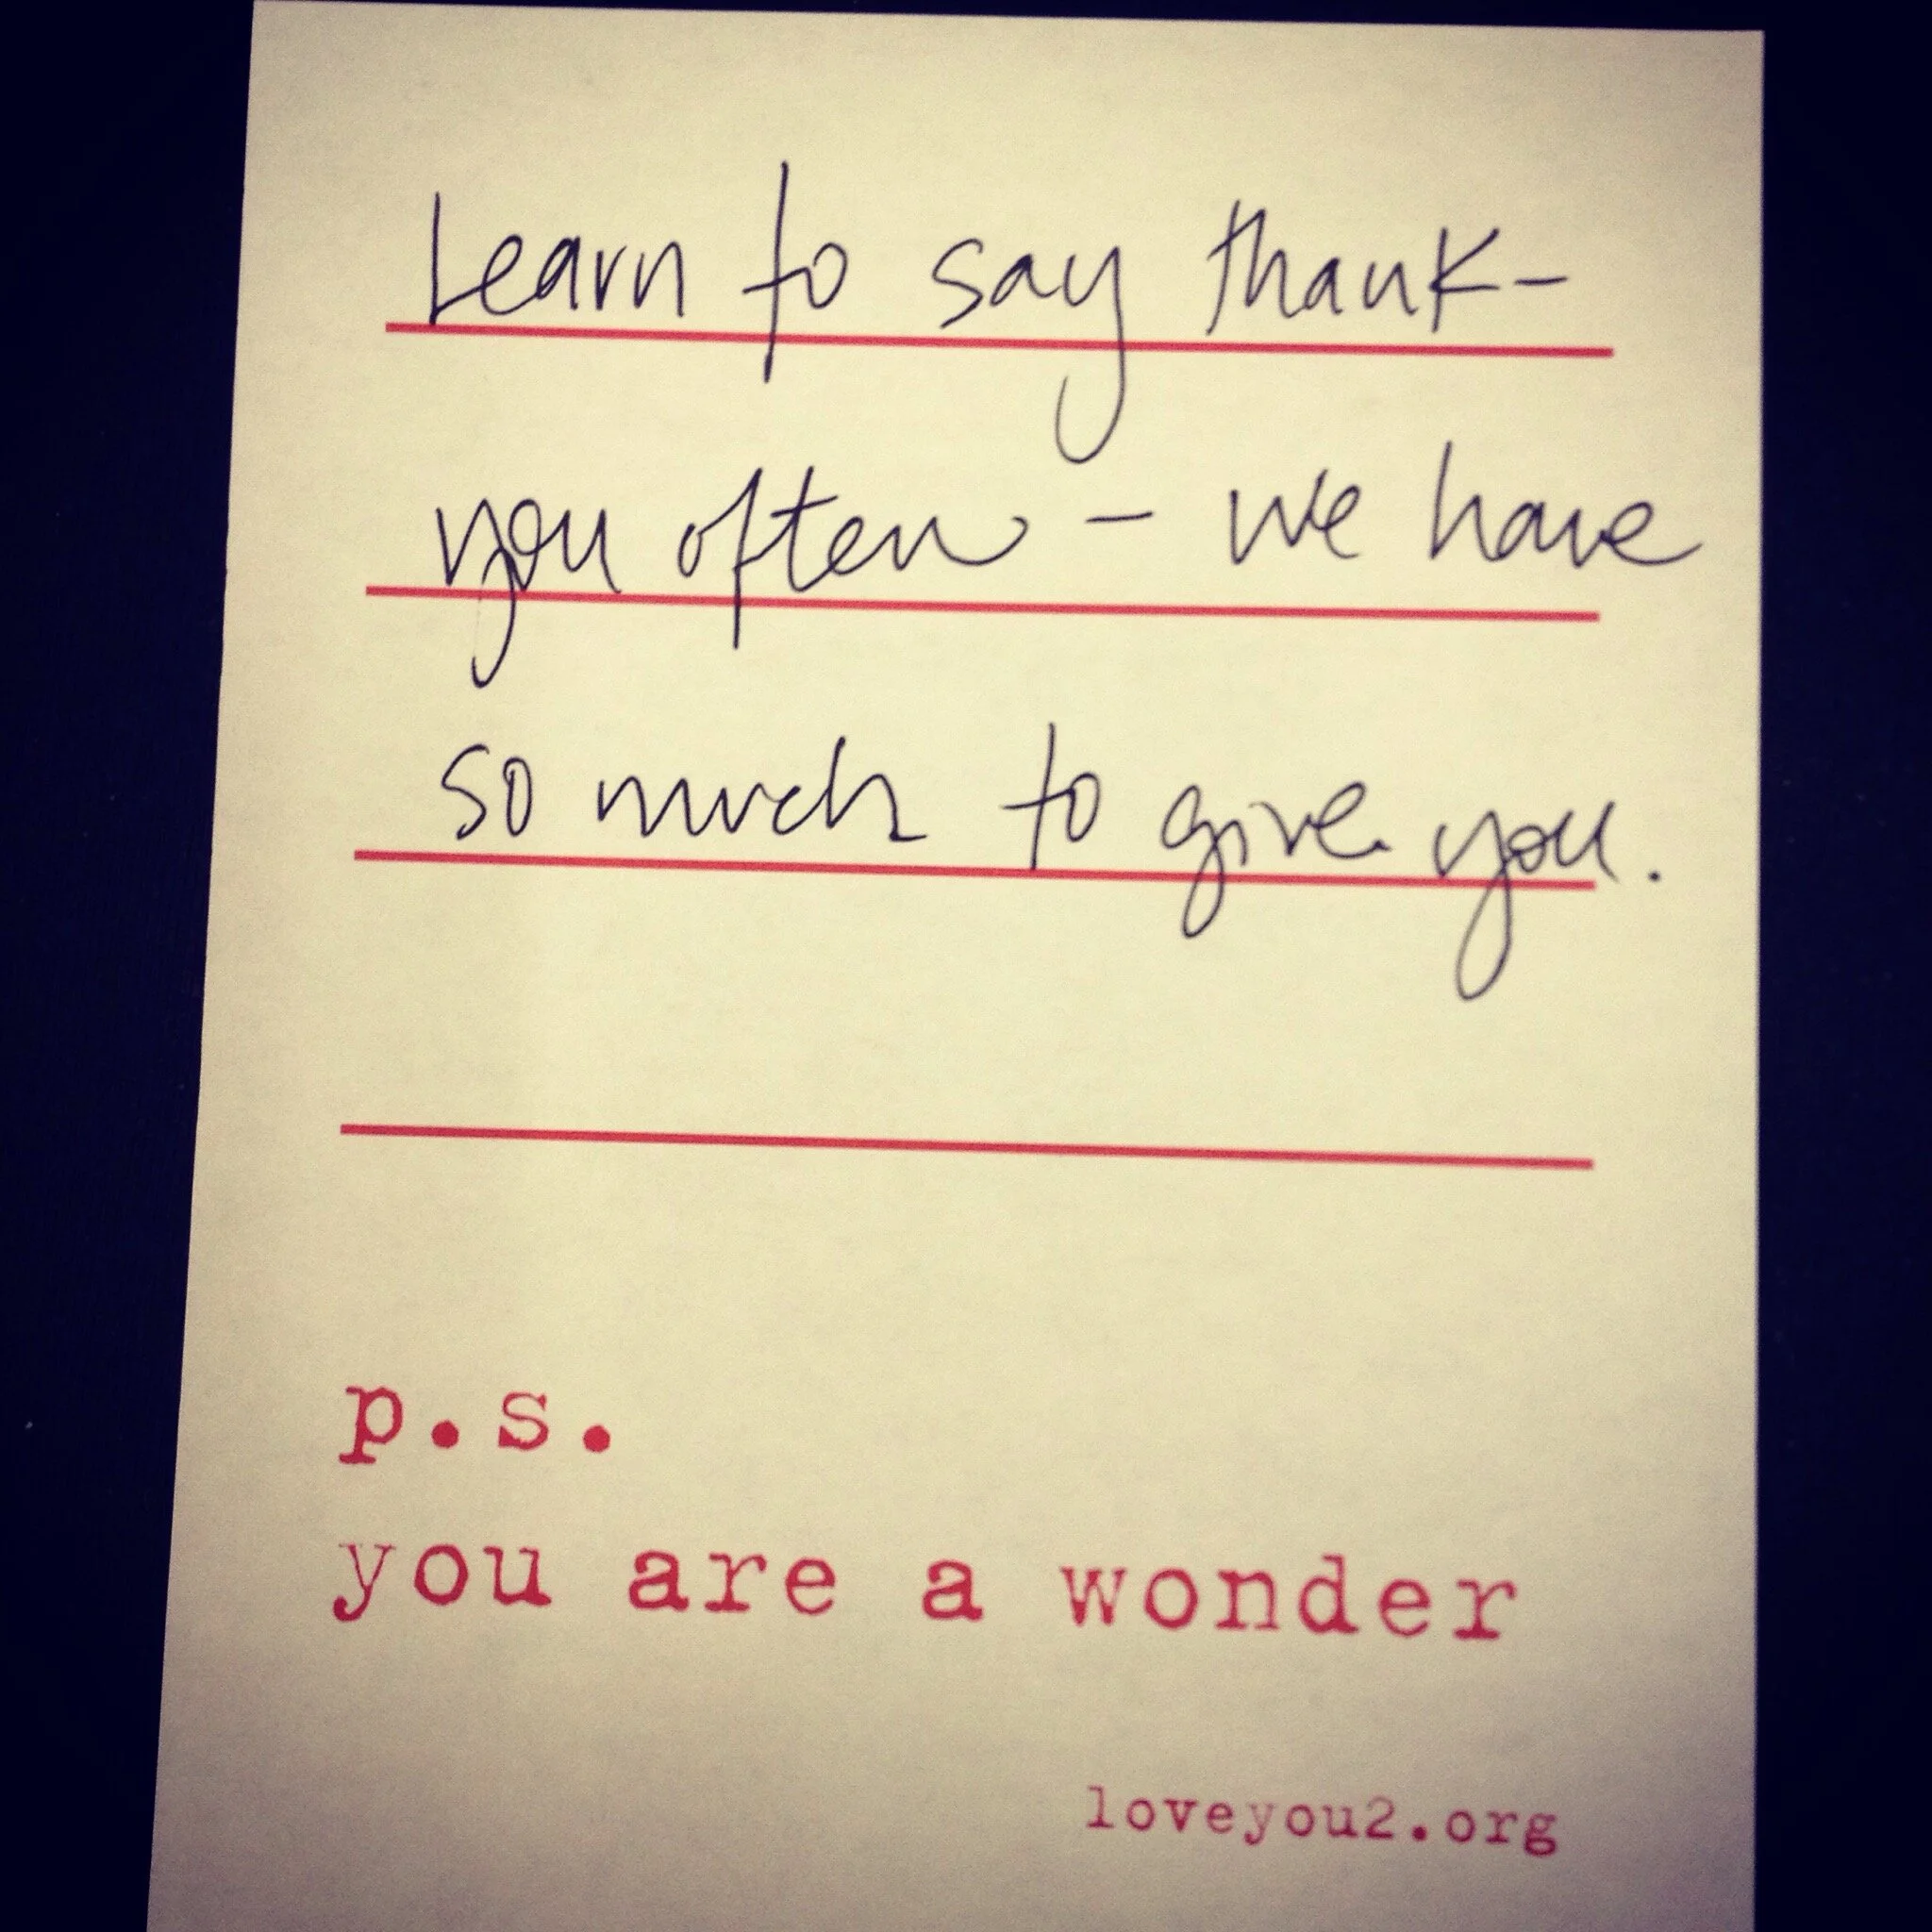 Learn to say thank-
you often - we have
so much to give you.
p.s.
you are a wonder
loveyou2.org